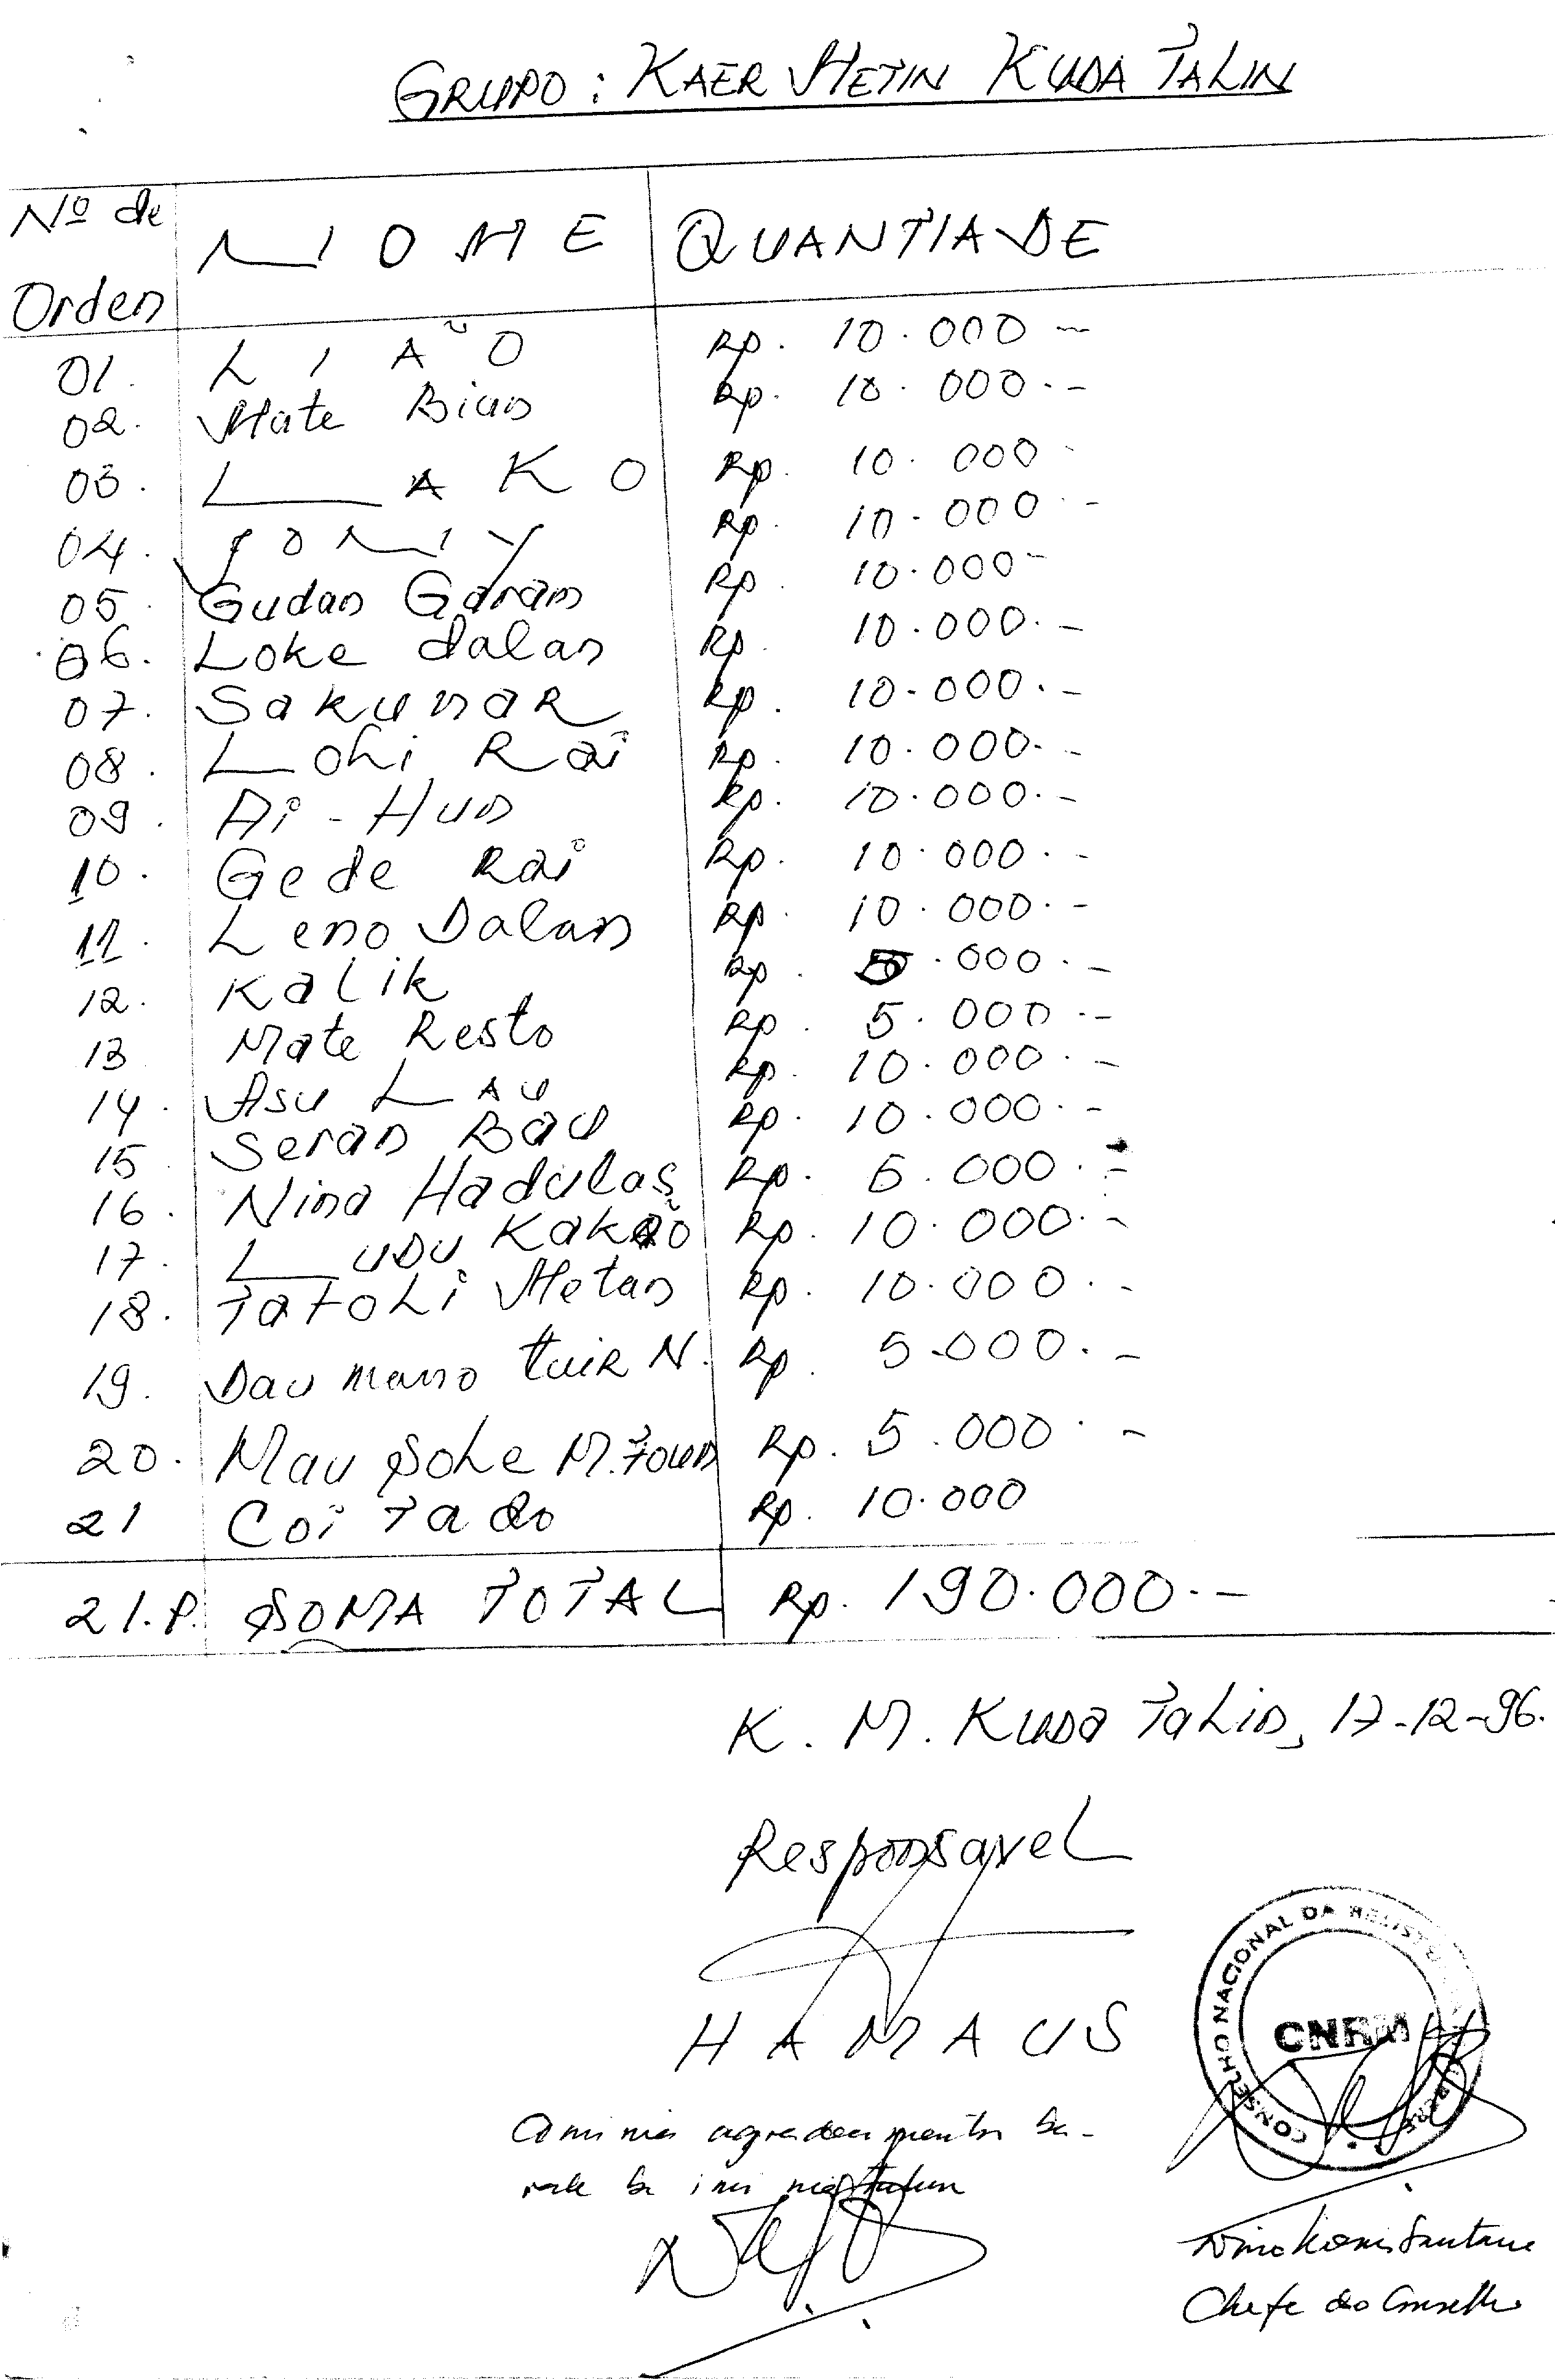 GRUPO: KAER METIN KUDA TALIN
Nº de Orden NOME QUANTIADE
01. LIÃO Rp. 10.000 -
02. Mate Bian Rp. 10.000.-
03. LAKO Rp. 10.000
04. JONIY Rp. 10.000.-
05. Gudan Garam Rp. 10.000-
06. Loke dalan Rp. 10.000.-
07. Sakunar Rp. 10.000.-
08. Lohi Rai Rp. 10.000.-
09. Ai-Hun Rp. 10.000.-
10. Gede Rai Rp. 10.000.-
11. Leno Dalan Rp. 10.000.-
12. Kalik Rp. 5.000.-
13 Mate Resto Rp. 5.000.-
14. Asu LAU Rp. 10.000.-
15. Seran Bau Rp. 10.000.-
16. Nina Hadulas Rp. 5.000.-
17. Ludu Kakão Rp. 10.000.-
18. Tafoli Metan Rp. 10.000.-
19. Dau mano tuir N. Rp. 5.000.-
20. Mau Sohe M. Foun Rp. 5.000.-
21 Coitado Rp. 10.000
21.P. SOMA TOTAL Rp. 190.000.-
K. M. Kuda Talin, 17-12-96.
Responsavel
HAMAUS
CONSELHO NACIONAL DA RESIST
CNRM
Chefe do Conselho